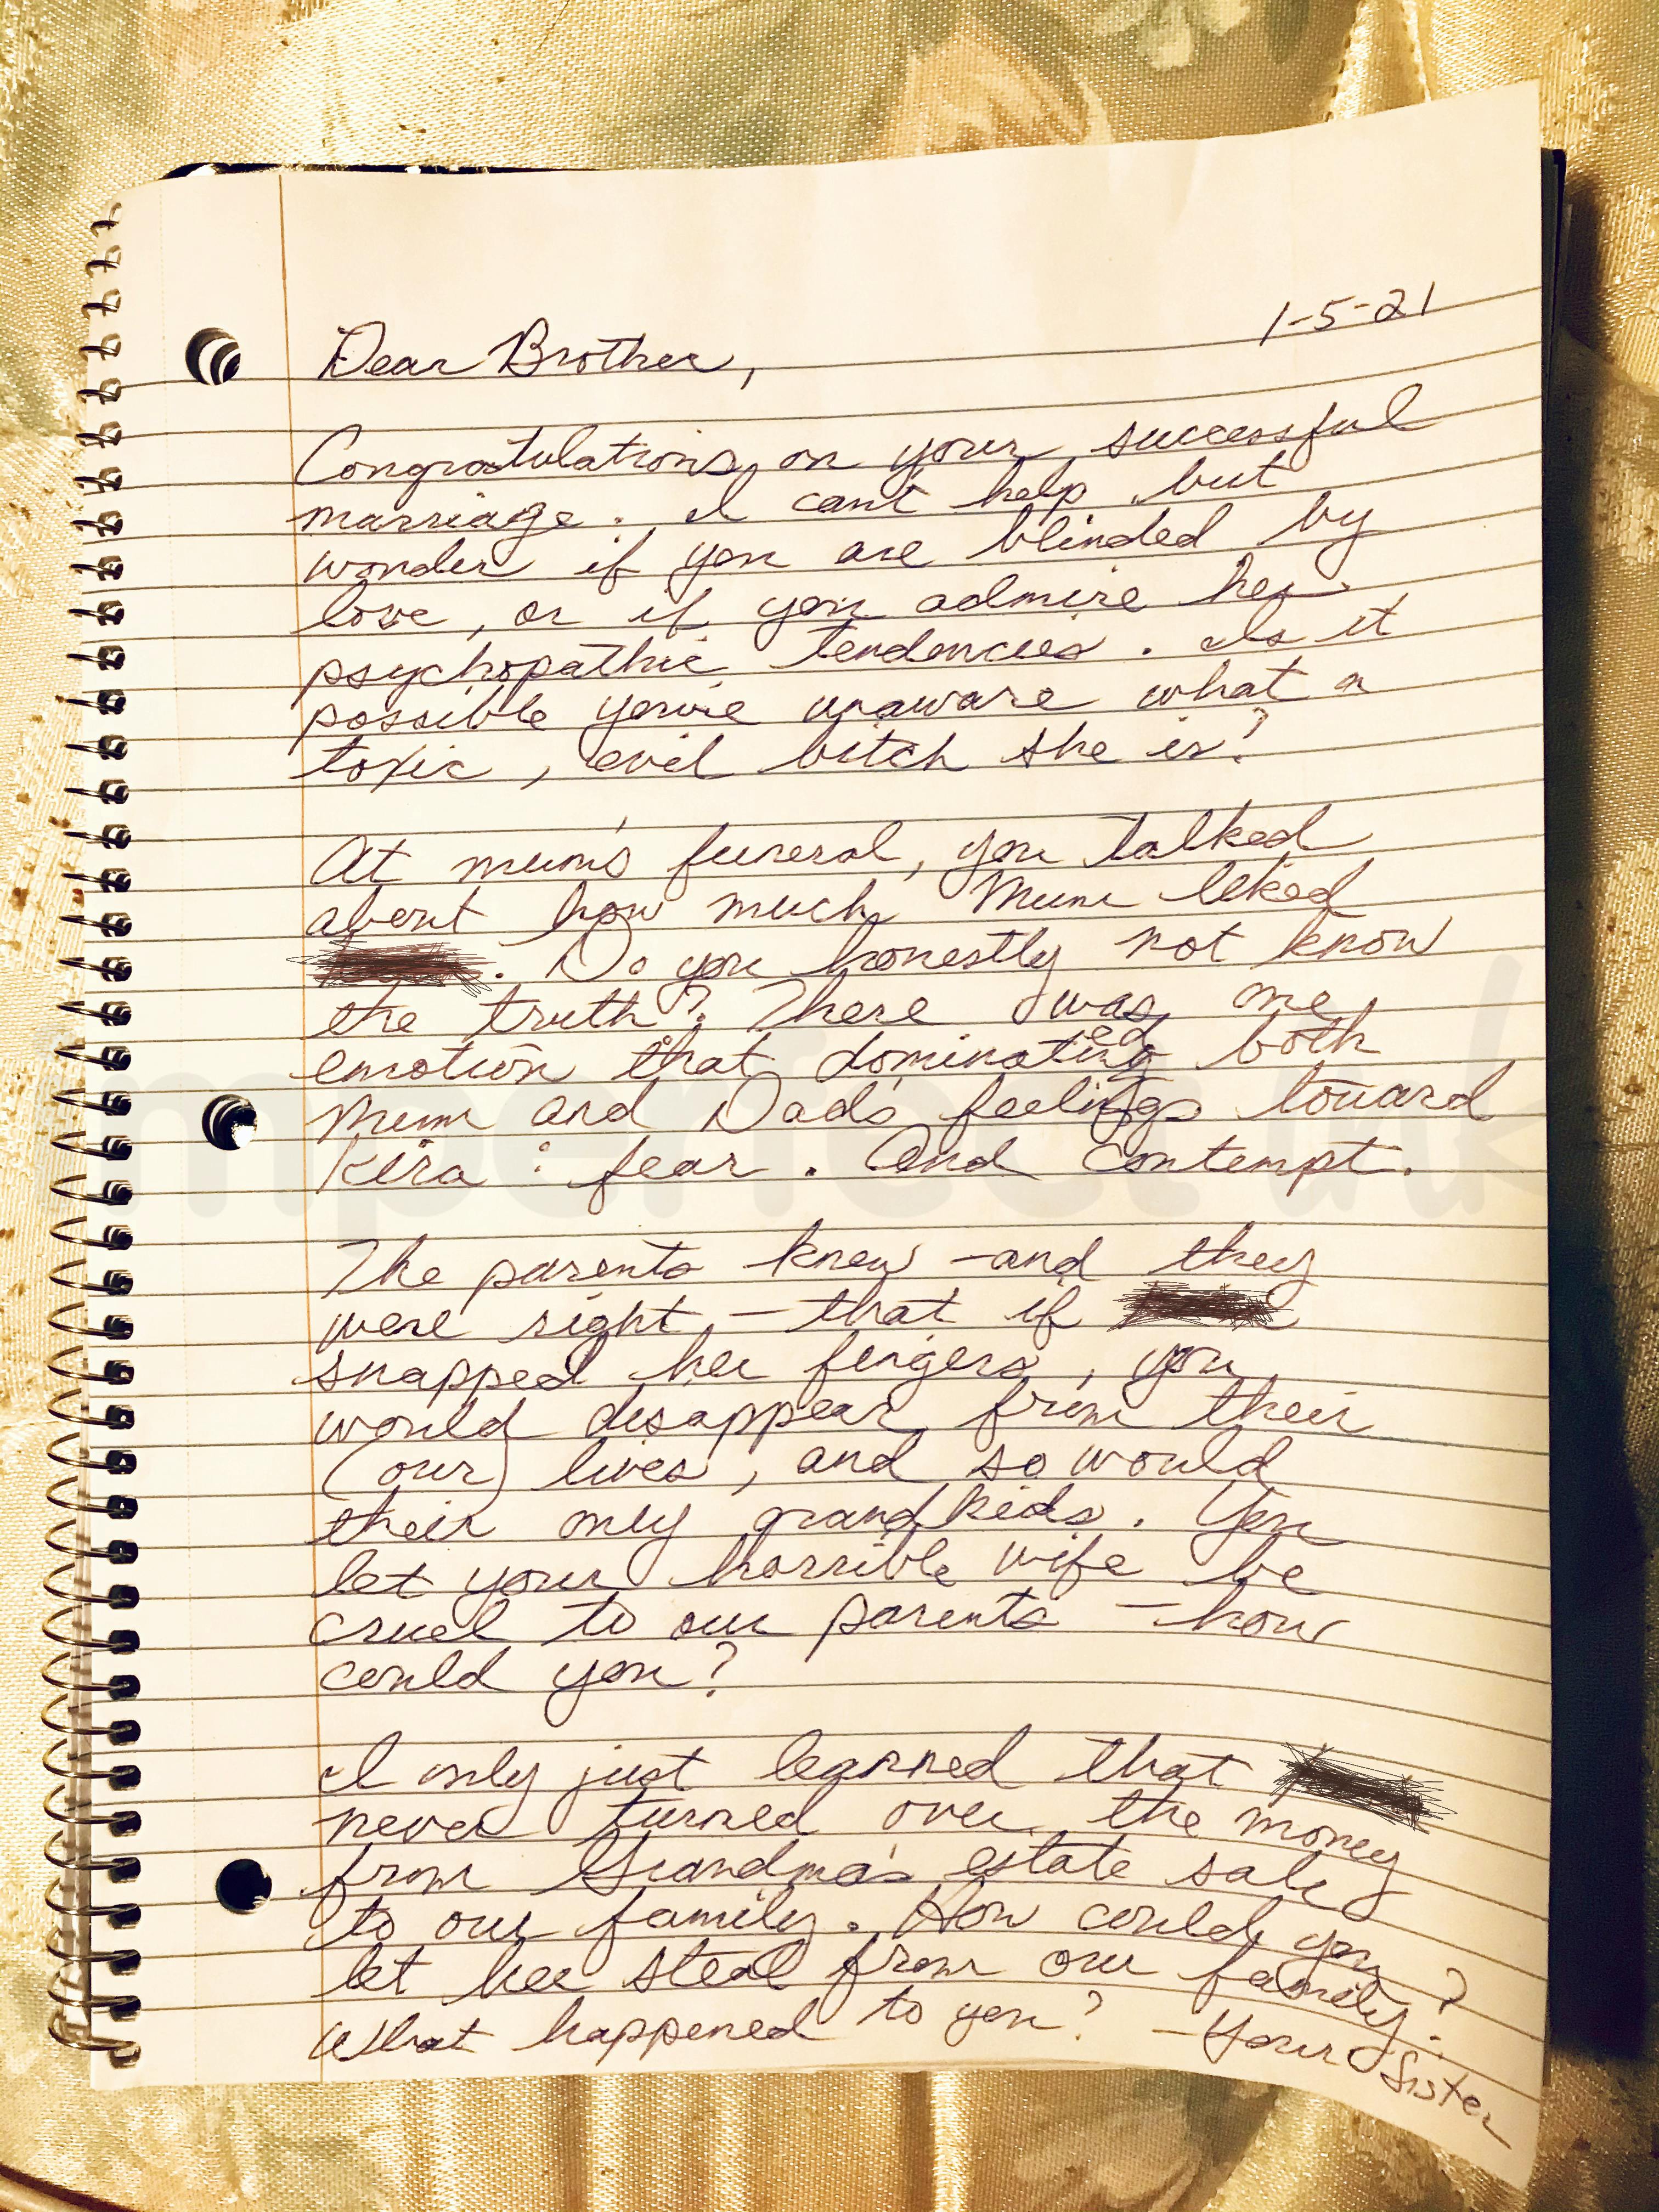 1-5-21
Dear Brother,
Congratulations on your successful
marriage. I can't help but
wonder if you are blinded by
love, or if you admire her
psychopathic tendencies. Is it
possible you're unaware what a
toxic, evil bitch she is?
At mum's funeral, you talked
about how much Mum liked
. Do you honestly not know
the truth? There was one
emotion that dominated both
Mum and Dad's feelings toward
Kira: fear. And contempt.
The parents knew - and they
were right - that if
snapped her fingers, you
would disappear from their
(our) lives, and so would
their only grandkids. You
let your horrible wife be
cruel to our parents - how
could you?
I only just learned that
never turned over the money
from Grandma's estate sale
to our family. How could you
let her steal from our family?
What happened to you? - Your Sister